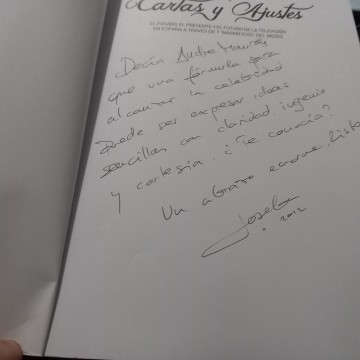 Cartas y Ajustes
EL PASADO, EL PRESENTE Y EL FUTURO DE LA TELEVISIÓN
EN ESPAÑA A TRAVÉS DE MAGNÍFICOS DEL MEDIO
Decía André Maurois
que una fórmula para
alcanzar la celebridad
Puede ser expresar ideas
sencillas con claridad, ingenio
y cortesía. ¿Te conocía?
Un abrazo enorme,
Joseba
2012